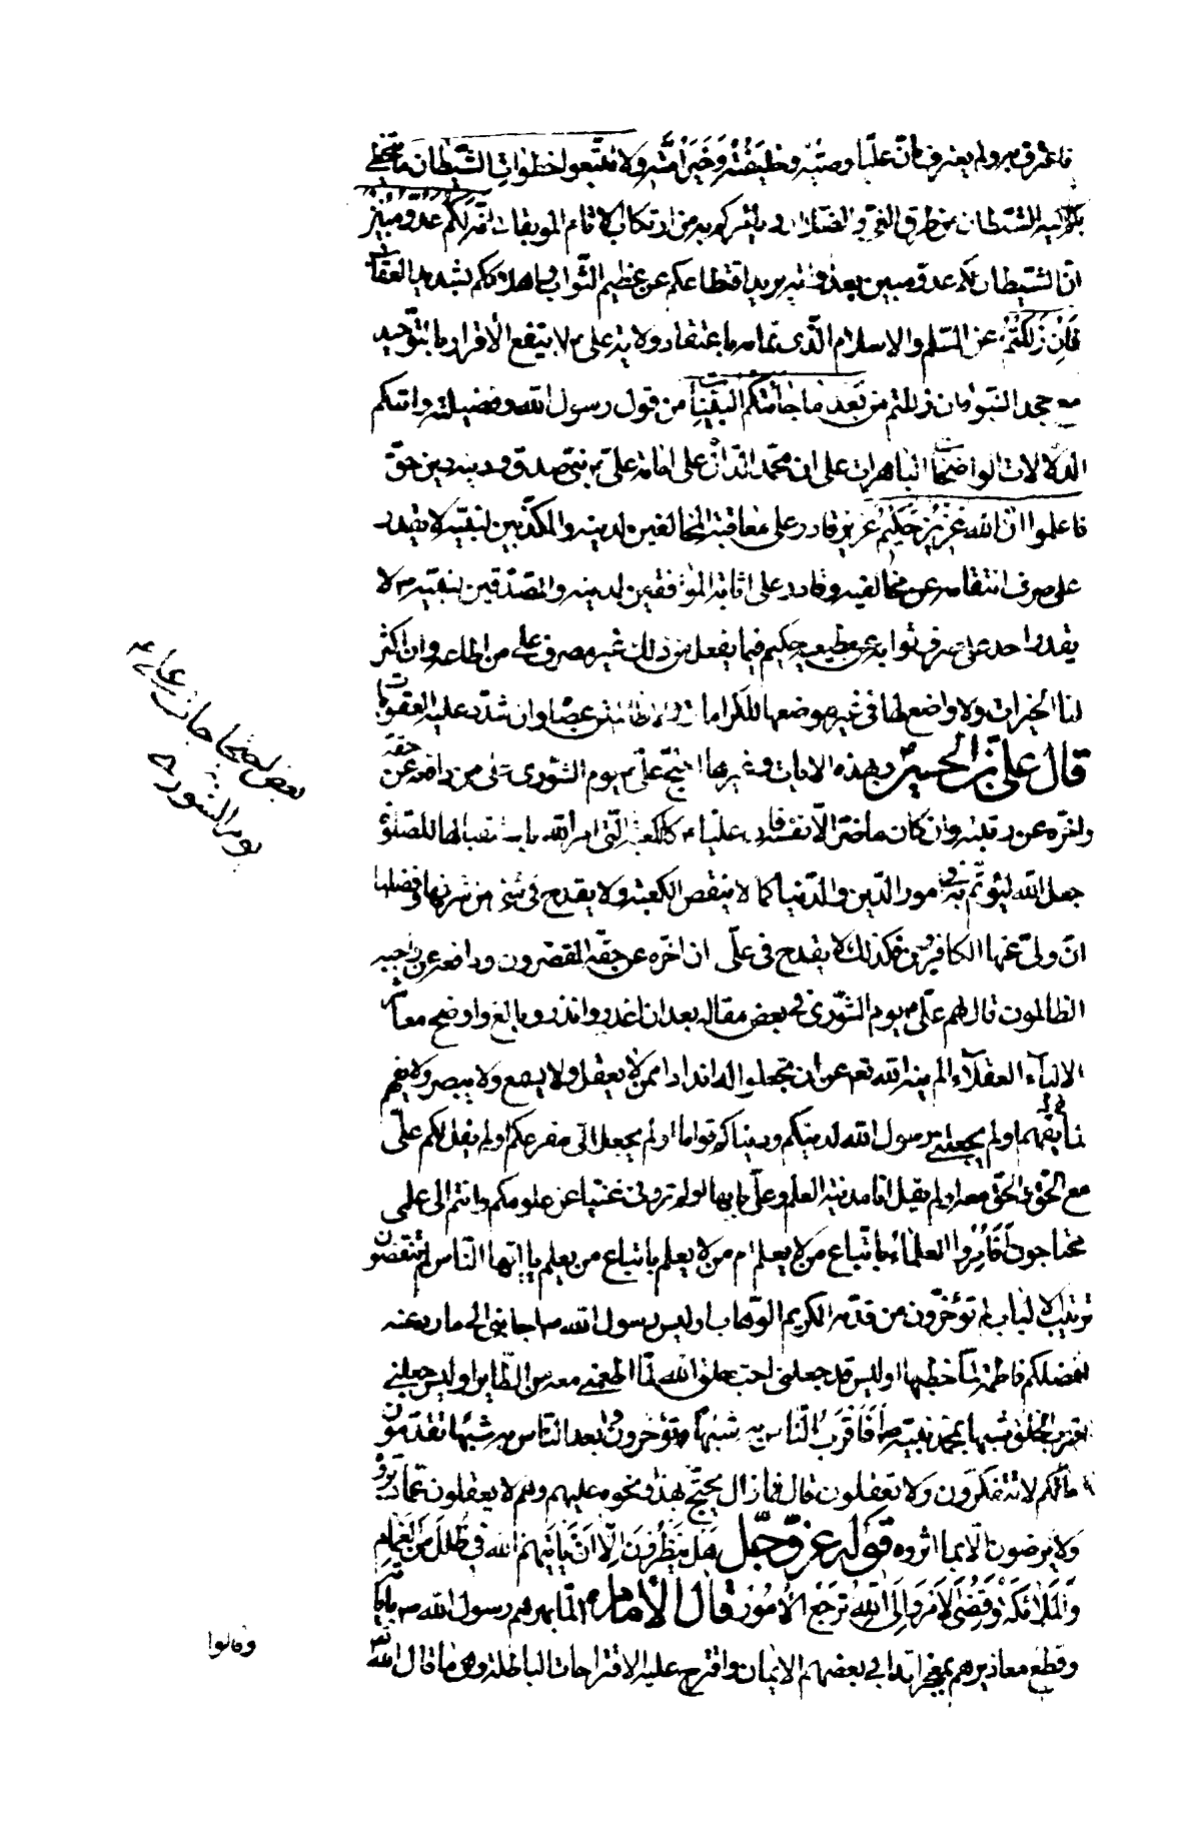 فاعترف به ولم يعترف بان عليا وصيه وخليفته وخير امته ولا تتبعوا خطوات الشيطان ما يتخطى
بكم اليه الشيطان من طرق الغي والضلال ويأمركم به من ارتكاب الآثام الموبقات انه لكم عدو مبين
ان الشيطان لكم عدو مبين بعداوته يريد اقتطاعكم عن عظيم الثواب واهلاككم بشديد العقاب
فان زللتم عن السلم والاسلام الذي تمامه باعتقاد ولاية علي م لا ينفع الاقرار بالتوحيد
مع جحد النبوة فان زللتم من بعد ما جائتكم البينات من قول رسول الله وفضيلته واتتكم
الدلالات الواضحات الباهرات على ان محمد الدال على امامة علي م نبي صدق ودينه دين حق
فاعلموا ان الله عزيز حكيم عزيز قادر على معاقبة المخالفين لدينه والمكذبين لنبيه لا يقدر
على صرف انتقامه عن مخالفيه وقادر على اثابة الموافقين لدينه والمصدقين لنبيه ص لا
يقدر احد على صرف ثوابه عن مطيعيه حكيم فيما يفعل من ذلك غير مسرف على من اطاعه وان اكثر
لنا الخيرات ولا واضع لها في غير موضعها للكرامات ولا ظالم لمن عصاه وان شدد عليه العقوبات
قال علي بن الحسين وبهذه الايات وغيرها احتج علي م يوم الشورى على من دافعه عن حقه
واخره عن رتبته وان كان ما ضر الا نفسه فان عليا م كالكعبة التي امر الله باستقبالها للصلوة
جعل الله ليؤتم به في امور الدين والدنيا كما لا ينقص الكعبة ولا يقدح في شئ من شرفها وفضلها
ان ولى عنها الكافرون فكذلك لا يقدح في علي ان اخره عن حقه المقصرون ودافعه عن واجبه
الظالمون قال لهم علي م يوم الشورى في بعض مقاله بعد ان اعذر وانذر وبالغ واوضح معاشر
الالباء العقلاء الم ينه الله تعم عن ان تجعلوا له اندادا ممن لا يعقل ولا يسمع ولا يبصر ولا يفهم
كما يفهم اولم يجعلني رسول الله لدينكم ودنياكم قواما اولم يجعل الي مفزعكم اولم يقل لكم علي
مع الحق والحق معه اولم يقل انا مدينة العلم وعلي بابها اولم تروني غنيا عن علومكم وانتم الى علمي
محتاجون افامر الله العلماء باتباع من لا يعلم ام من لا يعلم باتباع من يعلم يا ايها الناس لم تنقضون
ترتيب الالباب لم تؤخرون من قدمه الكريم الوهاب اوليس رسول الله ص اجابني الى ما رد عنه
افضلكم فاطمة لما خطبها اوليس قد جعلني احب خلق الله لما اطعمني معه من الطاير اوليس جعلني
اقرب الخلق شبها بمحمد نبيه ص افاقرب الناس به شبها تؤخرون وابعد الناس به شبها تقدمون
مالكم لا تتفكرون ولا تعقلون قال فما زال يحتج بهذا ونحوه عليهم وهم لا يعقلون عما دبروه
ولا يرضون الا بما اثروه قوله عز وجل هل ينظرون الا ان ياتيهم الله في ظلل من الغمام
والملائكة وقضي الامر والى الله ترجع الامور قال الامام م لما بهرهم رسول الله ص باياته
وقطع معاذيرهم بمعجزاته ابى بعضهم الايمان واقترح عليه الاقتراحات الباطلة وهي ما قال الله تعم
وقالوا
بعض احتجاجات علي ع
يوم الشورى